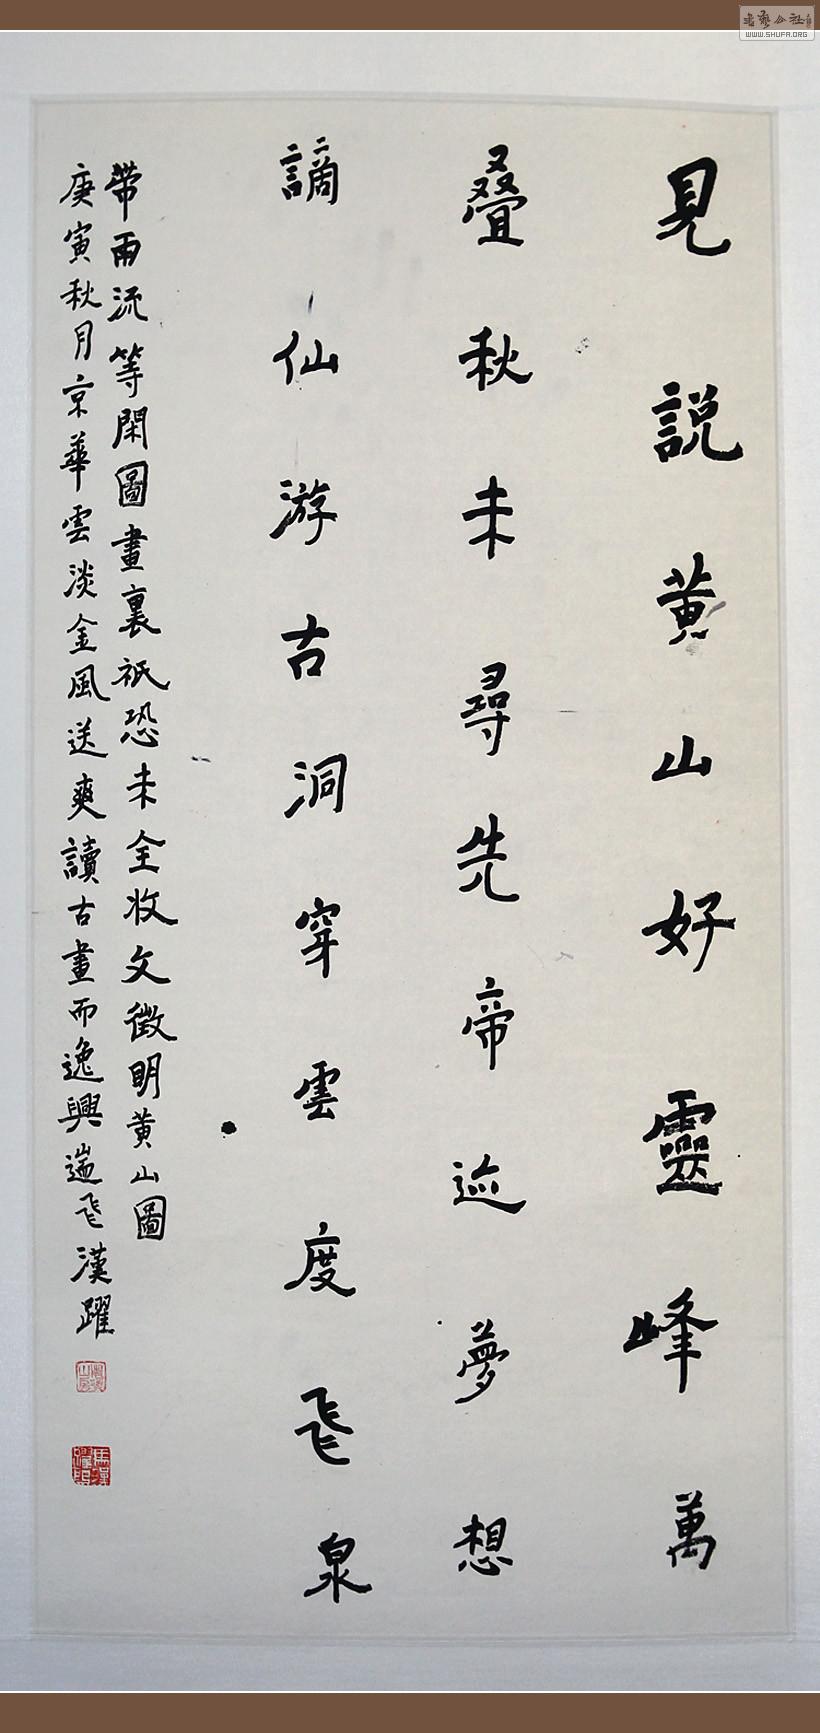 見説黄山好靈峰萬
叠秋未尋先帝迹夢想
謫仙游古洞穿雲度飛泉
帶雨流等閑圖畫裏祇恐未全收文徵明黄山圖
庚寅秋月京華雲淡金風送爽讀古畫而逸興遄飛漢躍
WWW.SHUFA.ORG